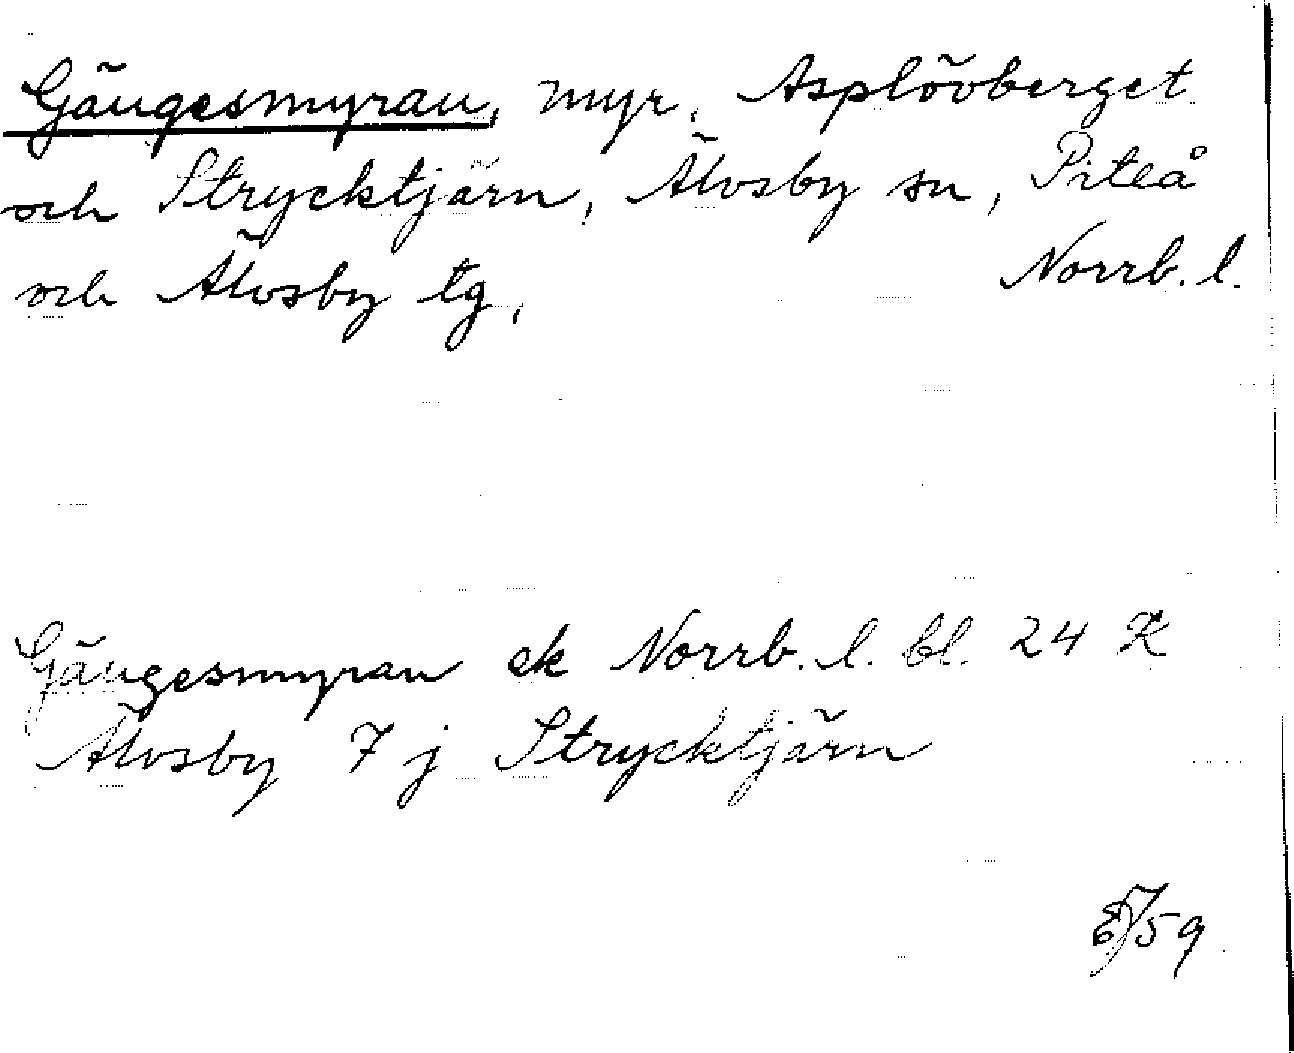 Gängesmyran, myr, Asplövberget
och Strycktjärn, Älvsby sn, Piteå
och Älvsby tg, Norrb. l.
Gängesmyran ek Norrb. l. bl. 24 K
Älvsby 7 j Strycktjärn
59